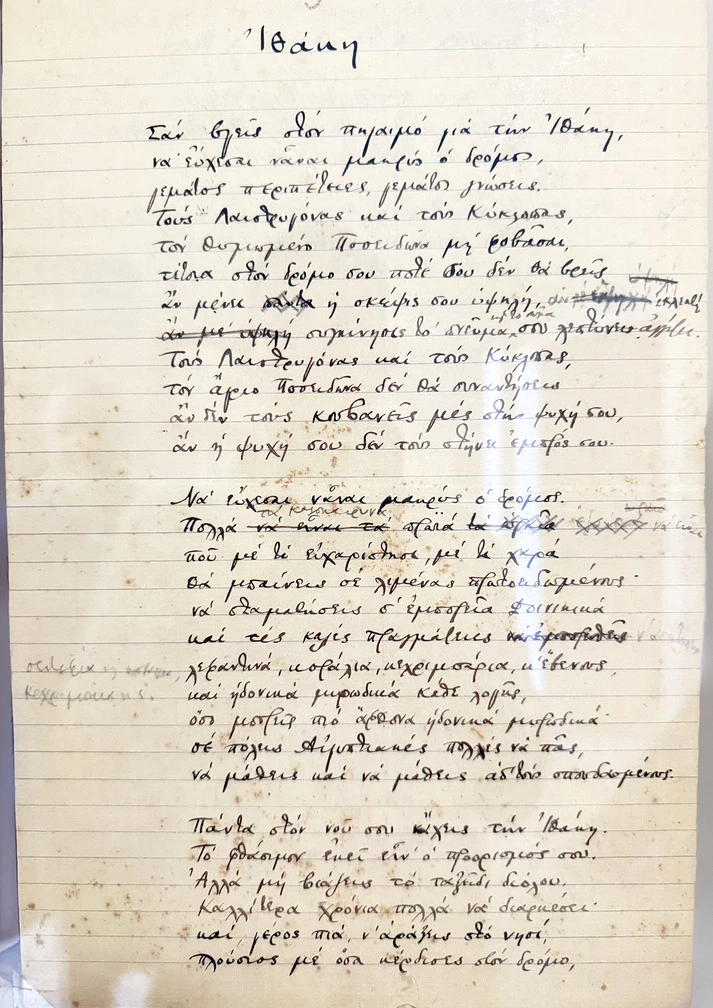 Ἰθάκη
Σὰν βγεῖς στὸν πηγαιμὸ γιὰ τὴν Ἰθάκη,
νὰ εὔχεσαι νἆναι μακρὺς ὁ δρόμος,
γεμάτος περιπέτειες, γεμάτος γνώσεις.
Τοὺς Λαιστρυγόνας καὶ τοὺς Κύκλωπας,
τὸν θυμωμένο Ποσειδῶνα μὴ φοβᾶσαι,
τέτοια στὸν δρόμο σου ποτέ σου δὲν θὰ βρεῖς
ἂν μένει πάντα ἡ σκέψις σου ὑψηλή, ἂν ἐκλεκτὴ
ἂν μὲ ὑψηλὴ συγκίνησις τὸ πνεῦμα καὶ τὸ σῶμα σου λεπτύνεις ἀγγίζει.
Τοὺς Λαιστρυγόνας καὶ τοὺς Κύκλωπας,
τὸν ἄγριο Ποσειδῶνα δὲν θὰ συναντήσεις
ἂν δὲν τοὺς κουβανεῖς μὲς στὴν ψυχή σου,
ἂν ἡ ψυχή σου δὲν τοὺς στήνει ἐμπρός σου.
Νὰ εὔχεσαι νἆναι μακρὺς ὁ δρόμος.
Πολλὰ νὰ εἶναι τὰ τὰ καλοκαιρινὰ πρωϊὰ νὰ εἶναι
ποῦ μὲ τί εὐχαρίστησι, μὲ τί χαρὰ
θὰ μπαίνεις σὲ λιμένας πρωτοειδωμένους·
νὰ σταματήσεις σ' ἐμπορεῖα Φοινικικὰ
καὶ τὲς καλὲς πραγμάτειες
σεντέφια
κεχριμπάρια κ' ἔ.
λεβαντινά, κοράλια, κεχριμπάρια, κ' ἔβενους,
καὶ ἡδονικὰ μυρωδικὰ κάθε λογῆς,
ὅσο μπορεῖς πιὸ ἄφθονα ἡδονικὰ μυρωδικά·
σὲ πόλεις Αἰγυπτιακὲς πολλὲς νὰ πᾶς,
νὰ μάθεις καὶ νὰ μάθεις ἀπ' τοὺς σπουδασμένους.
Πάντα στὸν νοῦ σου νἄχεις τὴν Ἰθάκη.
Τὸ φθάσιμον ἐκεῖ εἶν' ὁ προορισμός σου.
Ἀλλὰ μὴ βιάζεις τὸ ταξεῖδι διόλου.
Καλλίτερα χρόνια πολλὰ νὰ διαρκέσει·
καί, γέρος πιά, ν' ἀράξεις στὸ νησί,
πλούσιος μὲ ὅσα κέρδισες στὸν δρόμο,